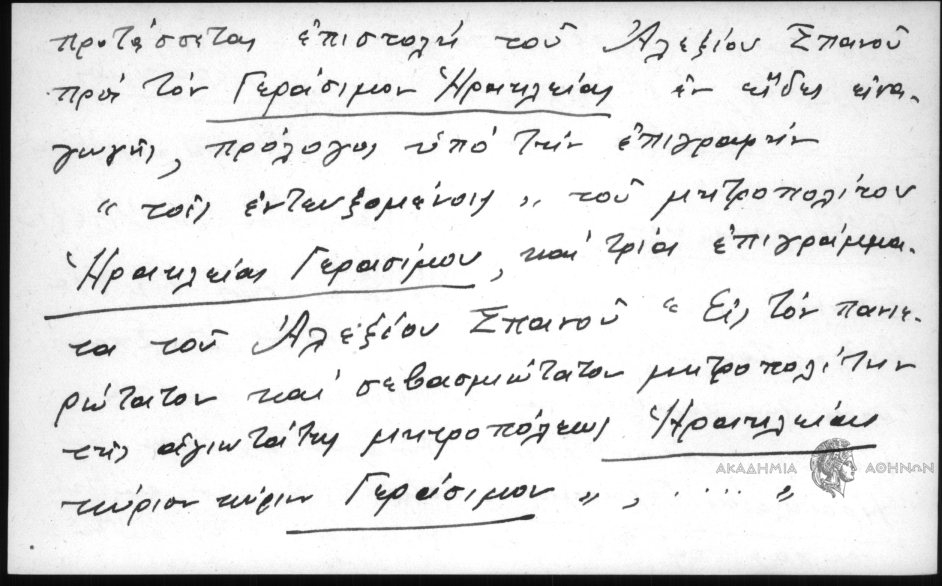 προτάσσεται ἐπιστολή τοῦ Ἀλεξίου Σπανοῦ
πρός τόν Γεράσιμον Ἡρακλείας ἐν εἴδει εἰσα-
γωγῆς, πρόλογος ὑπό τήν ἐπιγραφήν
"τοῖς ἐντευξομένοις" τοῦ μητροπολίτου
Ἡρακλείας Γερασίμου, καί τρία ἐπιγράμμα-
τα τοῦ Ἀλεξίου Σπανοῦ "Εἰς τόν πανιε-
ρώτατον καί σεβασμιώτατον μητροπολίτην
τῆς ἁγιωτάτης μητροπόλεως Ἡρακλείας
ΑΚΑΔΗΜΙΑ ΑΘΗΝΩΝ
κύριον κύριν Γεράσιμον", .... "